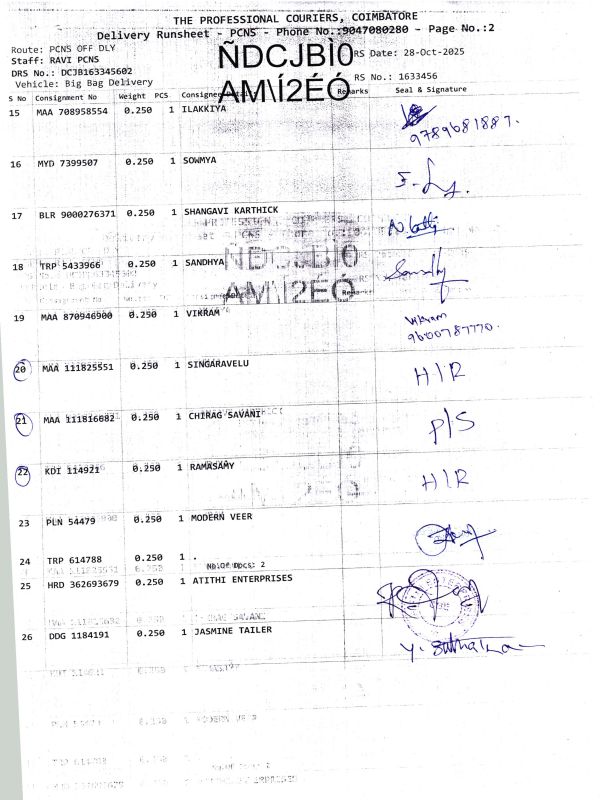 THE PROFESSIONAL COURIERS, COIMBATORE
Delivery Runsheet - PCNS - Phone No.:9047080280 - Page No.:2
Route: PCNS OFF DLY
Staff: RAVI PCNS
ÑDCJBÌ0 RS Date: 28-Oct-2025
DRS No.: DCJB163345602
AM\Í2ÉÓ RS No.: 1633456
Vehicle: Big Bag Delivery
S No Consignment No Weight PCS Consignee Remarks Seal & Signature
15 MAA 708958554 0.250 1 ILAKKIYA
9789681887.
16 MYD 7399507 0.250 1 SOWMYA
17 BLR 9000276371 0.250 1 SHANGAVI KARTHICK
18 TRP 5433966 0.250 1 SANDHYA
ÑDCJBÌ0
AM\Í2ÉÓ
19 MAA 870946900 0.250 1 VIKRAM
Vikram
9600787770.
20 MAA 111825551 0.250 1 SINGARAVELU H/R
21 MAA 111816682 0.250 1 CHIRAG SAVANI P/S
22 KDI 114921 0.250 1 RAMASAMY H/R
23 PLN 54479 0.250 1 MODERN VEER
24 TRP 614788 0.250 1 .
No.Of Docs: 2
25 HRD 362693679 0.250 1 ATITHI ENTERPRISES
26 DDG 1184191 0.250 1 JASMINE TAILER